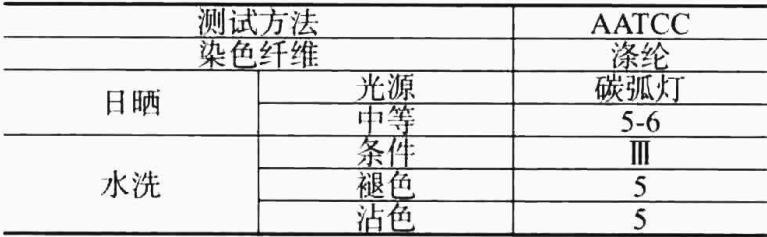 测试方法 AATCC
染色纤维 涤纶
日晒 光源 碳弧灯
中等 5-6
水洗 条件 Ⅲ
褪色 5
沾色 5